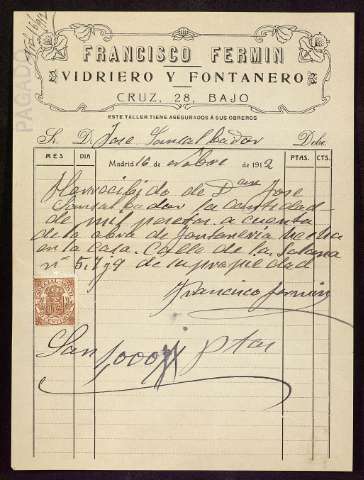 PAGADO
FRANCISCO FERMIN
VIDRIERO Y FONTANERO
CRUZ, 28, BAJO
ESTE TALLER TIENE ASEGURADOS A SUS OBREROS
Sr. D. Jose Santalbador Debe.
MES DIA Madrid 16 de 1912 PTAS. CTS.
He recibido de Dn Jose
la cantidad
de mil pesetas a cuenta
de la obra de fontaneria hecha
en la casa Calle de la
nº 5, 7 y 9 de su propiedad
Francisco Fermin
Son 1,000 ptas